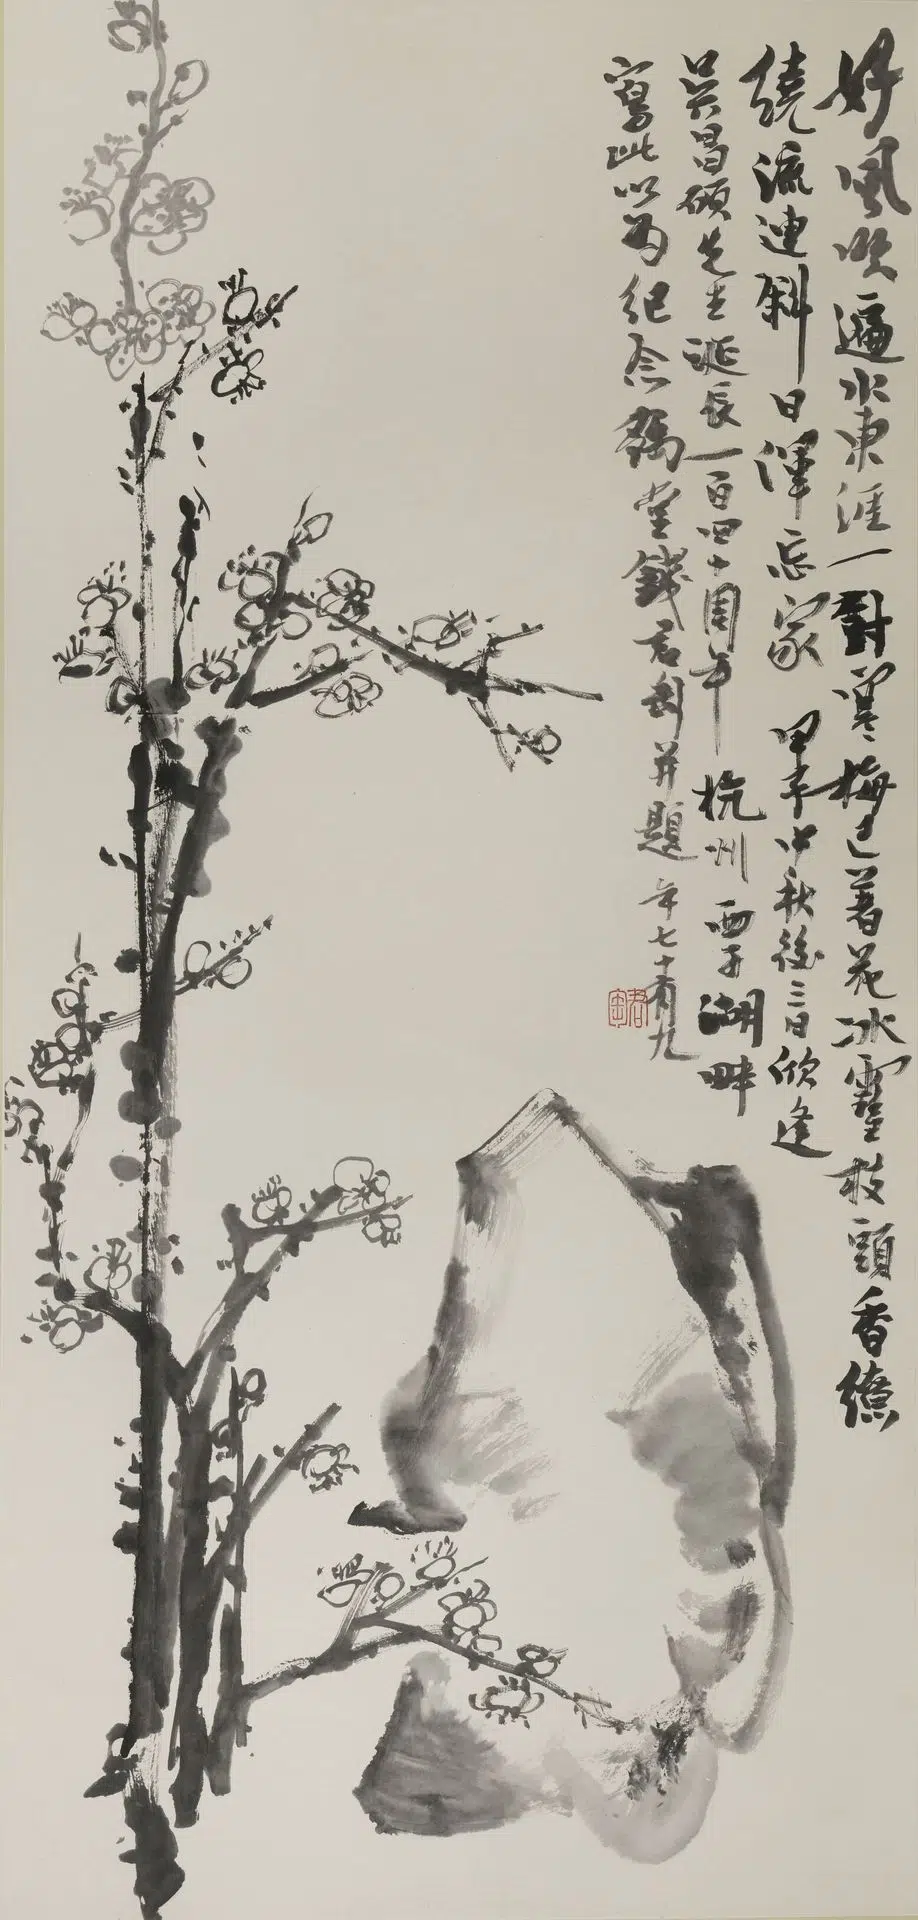 好風吹遍水東涯一對寒梅已著花冰雪枝頭香繚
繞流連斜日渾忘家 甲午中秋後三日欣逢
吳昌碩先生誕辰一百四十周年 杭州西子湖畔
寫此以為紀念 鶴堂錢君匋并題 年七十有九